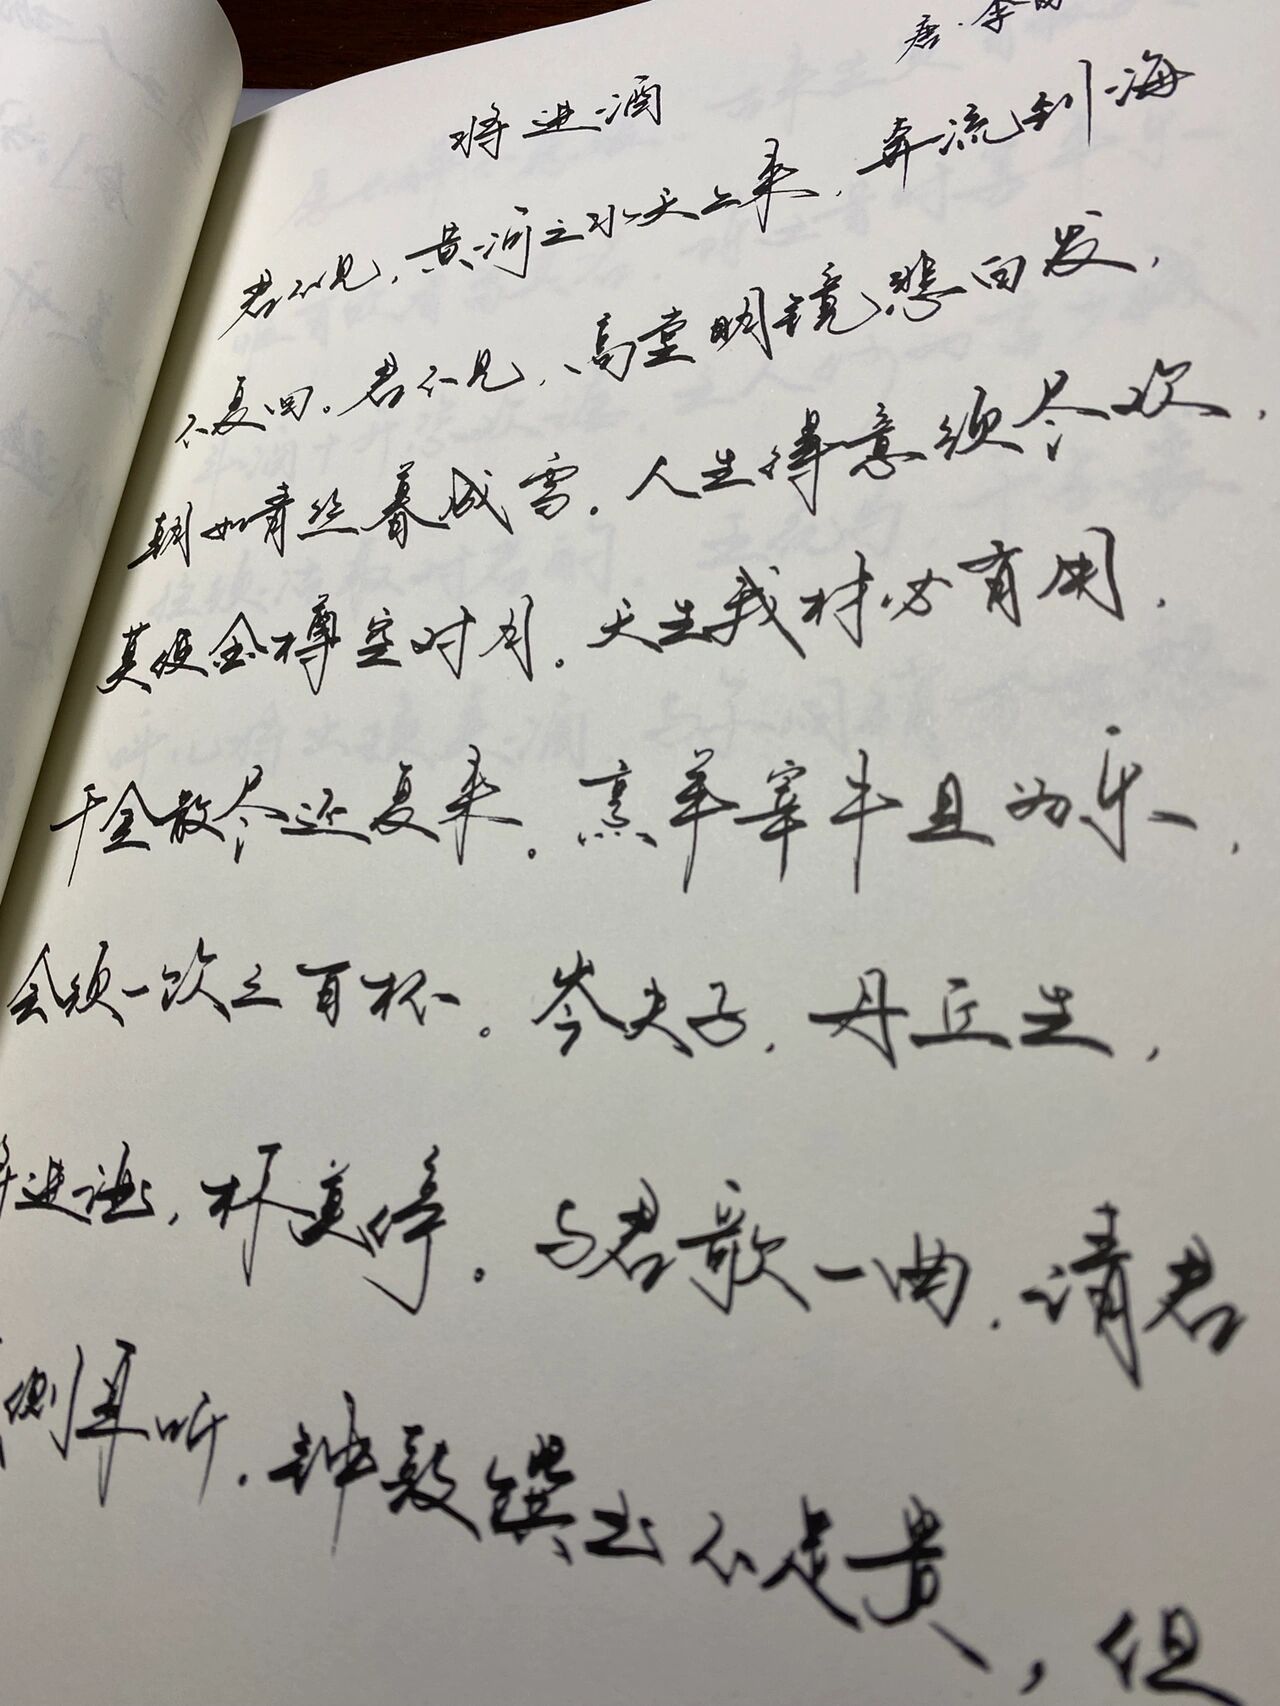 将进酒
唐·李白
君不见，黄河之水天上来，奔流到海
不复回。君不见，高堂明镜悲白发，
朝如青丝暮成雪。人生得意须尽欢，
莫使金樽空对月。天生我材必有用，
千金散尽还复来。烹羊宰牛且为乐，
会须一饮三百杯。岑夫子，丹丘生，
将进酒，杯莫停。与君歌一曲，请君
侧耳听，钟鼓馔玉不足贵，但